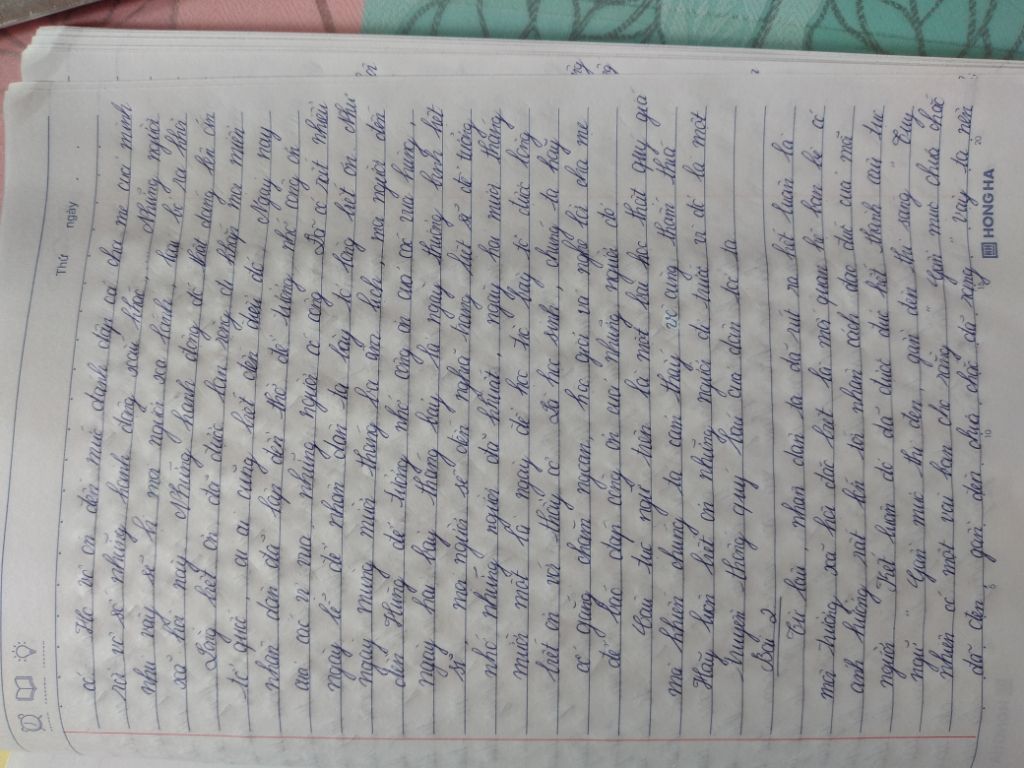 Thứ
ngày
có. Họ vô ơn đến mức đánh đập cả cha mẹ của mình
rồi vô số những hành động xấu khác,... Những người
như vậy sẽ bị mọi người xa lánh, bị xã hội
xã hội này. Những hành động đó thật đáng lên án
Lòng biết ơn đã được lan rộng đi khắp mọi miền
tổ quốc, ai ai cũng biết đến điều đó. Ngày nay
nhân dân đã lập đền thờ để tưởng nhớ công ơn
của các vị vua, những người có công. Đã có rất nhiều
ngày lễ để nhân dân ta bày tỏ lòng biết ơn. Như
ngày mùng mười tháng ba âm lịch, mọi người đến
đền Hùng để tưởng nhớ công ơn của các vua Hùng,
ngày hai bảy tháng bảy là ngày thương binh liệt
sĩ, mọi người sẽ đến nghĩa trang liệt sĩ để tưởng
nhớ những người đã khuất, ngày hai mươi tháng
mười một là ngày để học trò bày tỏ được lòng
biết ơn với thầy cô. Là học sinh, chúng ta hãy
cố gắng chăm ngoan, học giỏi và nghe lời cha mẹ
để báo đáp công ơn của những người đó
Câu tục ngữ trên là một bài học thật quý giá
mà khiến chúng ta cảm thấy vô cùng thấm thía
Hãy luôn biết ơn những người đi trước vì đó là một
truyền thống quý báu của dân tộc ta
Bài 2
Từ lâu, nhân dân ta đã rút ra kết luận là
môi trường xã hội đặc biệt là mối quan hệ bạn bè có
ảnh hưởng rất lớn tới nhân cách đạo đức của mỗi
người. Kết luận đó đã được đúc kết thành câu tục
ngữ " Gần mực thì đen, gần đèn thì sáng ". Tuy
nhiên có một vài bạn cho rằng " Gần mực chưa chắc
đã đen, gần đèn chưa chắc đã sáng ". Vậy ta nên
HONG HA